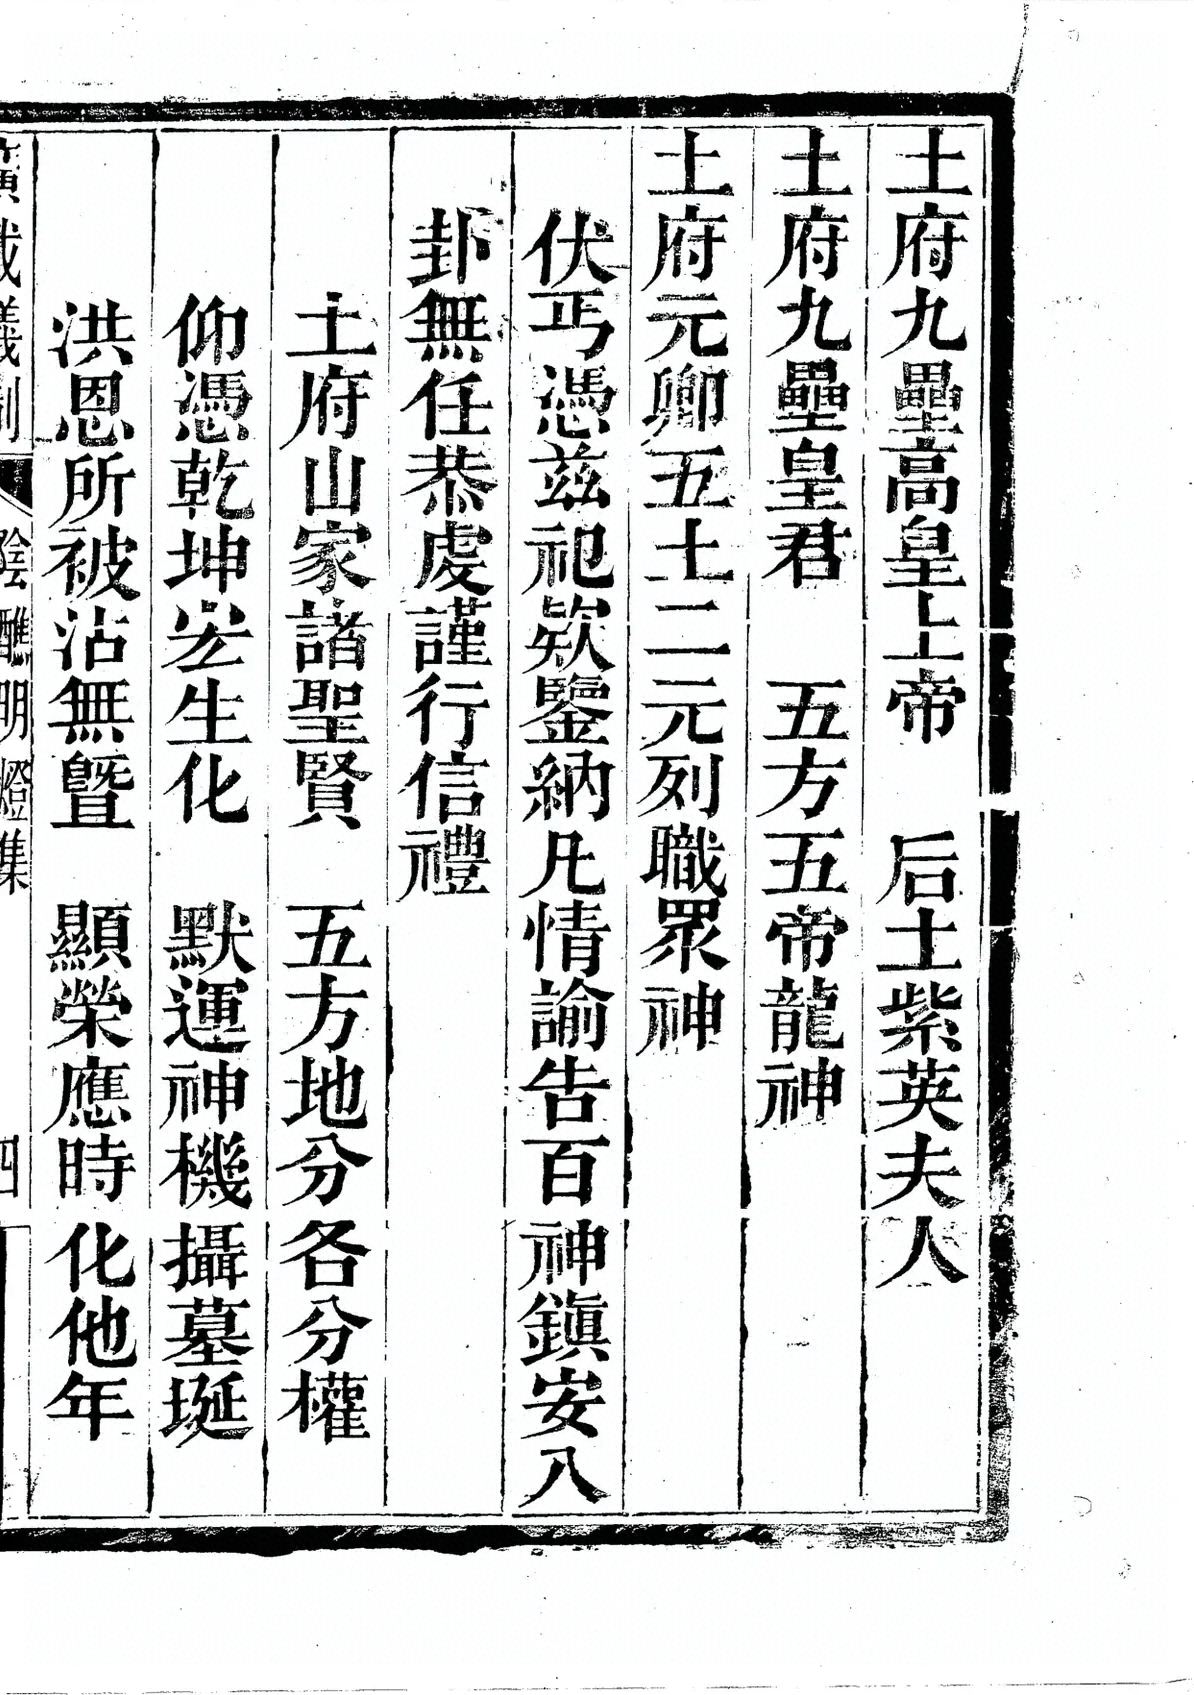 土府九壘高皇上帝　后土紫英夫人
土府九壘皇君　五方五帝龍神
土府元卿五土二元列職眾神
伏丐憑茲祀欵鑒納凡情諭告百神鎮安八
卦無任恭虔謹行信禮
土府山家諸聖賢　五方地分各分權
仰憑乾坤宏生化　默運神機攝墓埏
洪恩所被沾無暨　顯榮應時化他年
廣成儀制　陰醮明燈集　四